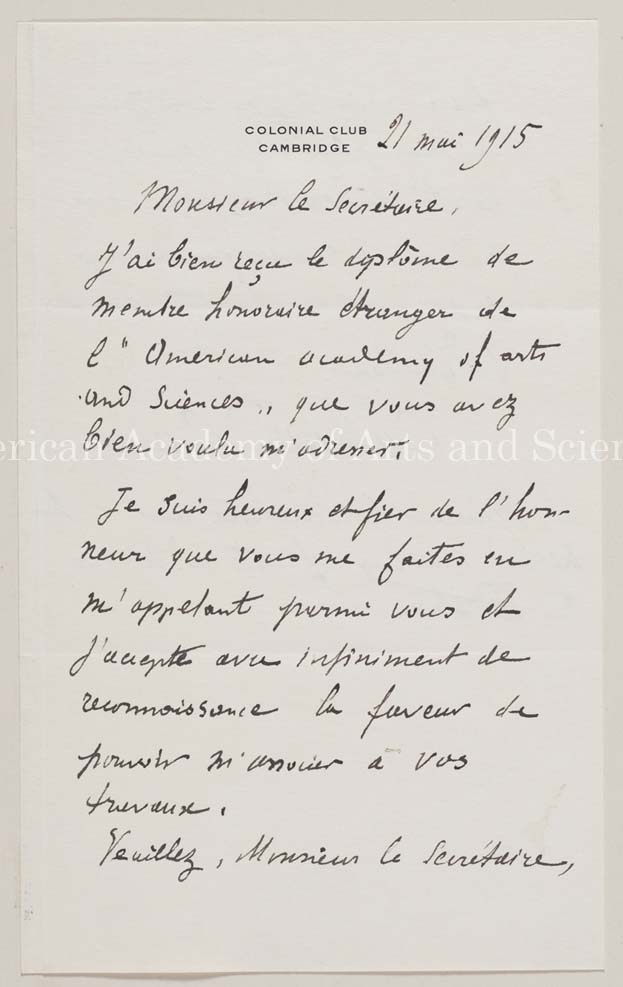 COLONIAL CLUB
CAMBRIDGE
21 mai 1915
Monsieur le Secrétaire,
J'ai bien reçu le diplôme de
membre honoraire étranger de
l'" American academy of arts
and Sciences ", que vous avez
bien voulu m'adresser.
erican Academy of Arts and Scien
Je suis heureux et fier de l'hon-
neur que vous me faites en
m'appelant parmi vous et
j'accepte avec infiniment de
reconnaissance la faveur de
pouvoir m'associer à vos
travaux.
Veuillez, Monsieur le Secrétaire,